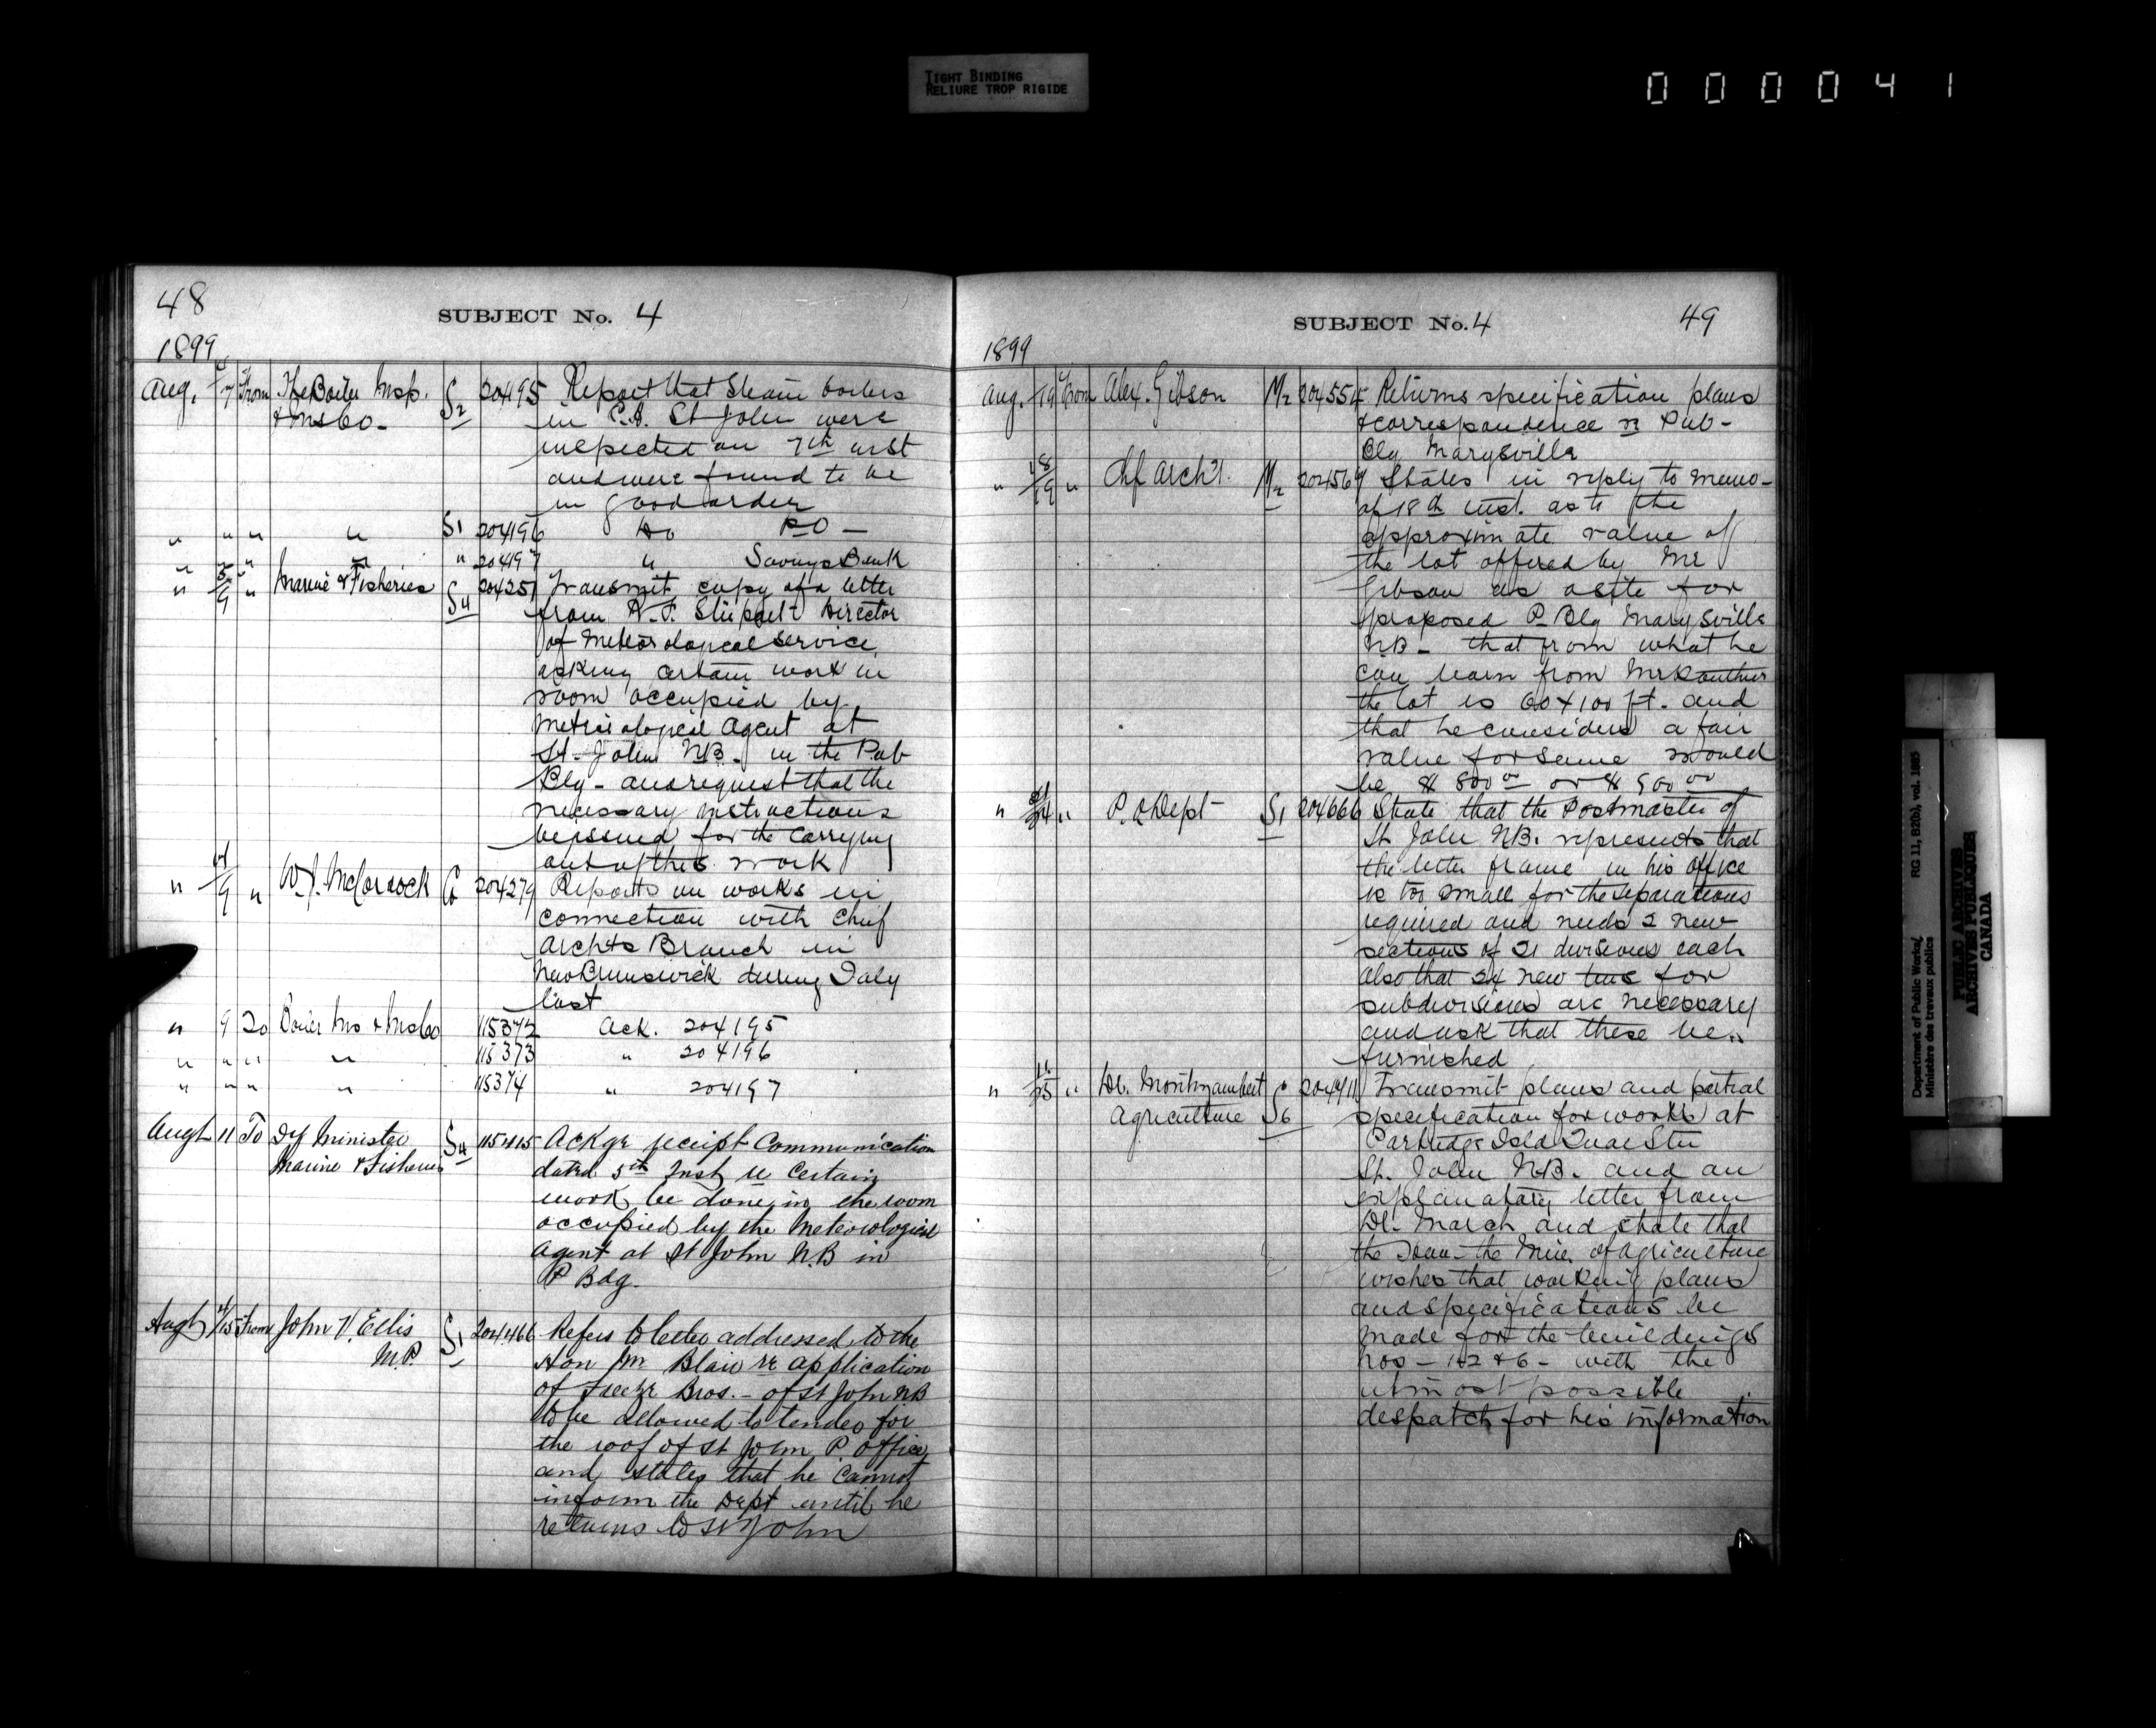 TIGHT BINDING
RELIURE TROP RIGIDE
000041
48
SUBJECT No. 4
1899
Aug. 7 From The Boiler Insp. S2 204195 Report that Steam boilers
& Ins Co- in St John were
inspected on 7th inst
and were found to be
in good order
" " " " S1 204196 Do P.O -
" " " " " 204197 " Savings Bank
" 5/9 " Marine & Fisheries S4 204251 Transmit copy of a letter
from R.F. Stupart Director
of Meteorological service
asking certain work in
room occupied by
Meteriological Agent at
St. John NB. in the Pub
Blg - and request that the
necessary instructions
be issued for the carrying
out of this work
" 9 " W.J. McCordock G 204279 Reports on works in
connection with Chief
Archts Branch in
New Brunswick during July
last
" 9 To Boiler Ins & Ins Co 115372 Ack. 204195
" " " " 115373 " 204196
" " " " 115374 " 204197
Augt 11 To Dy Minister S4 115415 Ackge receipt Communication
Marine & Fisheries dated 5th Inst re Certain
work be done in the room
occupied by the Meteorological
Agent at St John N.B in
P Bdg.
Augt 15 From John V. Ellis S1 204466 Refers to letter addressed to the
M.P. Hon Mr Blair re application
of Freeze Bros. - of St John NB
to be allowed to tender for
the roof of St John P. office
and states that he cannot
inform the Dept until he
returns to St John
SUBJECT No. 4
49
1899
Aug. 19 From Alex. Gibson M2 204554 Returns specification plans
& correspondence re Pub-
Blg Marysville
" 18/19 " Chf Archt. M2 204569 States in reply to memo-
of 18th inst. as to the
approximate value of
the lot offered by Mr
Gibson as a site for
proposed P. Blg Marysville
N.B- that from what he
can learn from Mr
the lot is 60 x 100 ft. and
that he considers a fair
value for same would
be $ 800 00 or $ 900 00
" 24 " P.O Dept S1 204666 State that the Postmaster of
St John NB. represents that
the letter frame in his office
is too small for the separations
required and needs 2 new
sections of 21 divisions each
also that 24 new tins for
subdivisions are necessary
and ask that these be
furnished
" 25 " Dr. Montizambert S6 Transmit plans and partial
Agriculture specification for works at
Partridge Isld Quar Stn
St. John N.B. and an
explanatory letter from
Dr. March and state that
the Hon- the Min. of Agriculture
wishes that working plans
and specifications be
made for the buildings
nos - 1 & 2 & 6 - with the
utmost possible
despatch for his information
Department of Public Works
Ministère des travaux publics
RG 11, B2(b), vol. 1885
PUBLIC ARCHIVES
ARCHIVES PUBLIQUES
CANADA